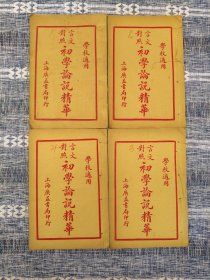 學校適用
言文
對照
初學論說精華
上海廣益書局印行
學校適用
言文
對照
初學論說精華
上海廣益書局印行
學校適用
言文
對照
初學論說精華
上海廣益書局印行
學校適用
言文
對照
初學論說精華
上海廣益書局印行